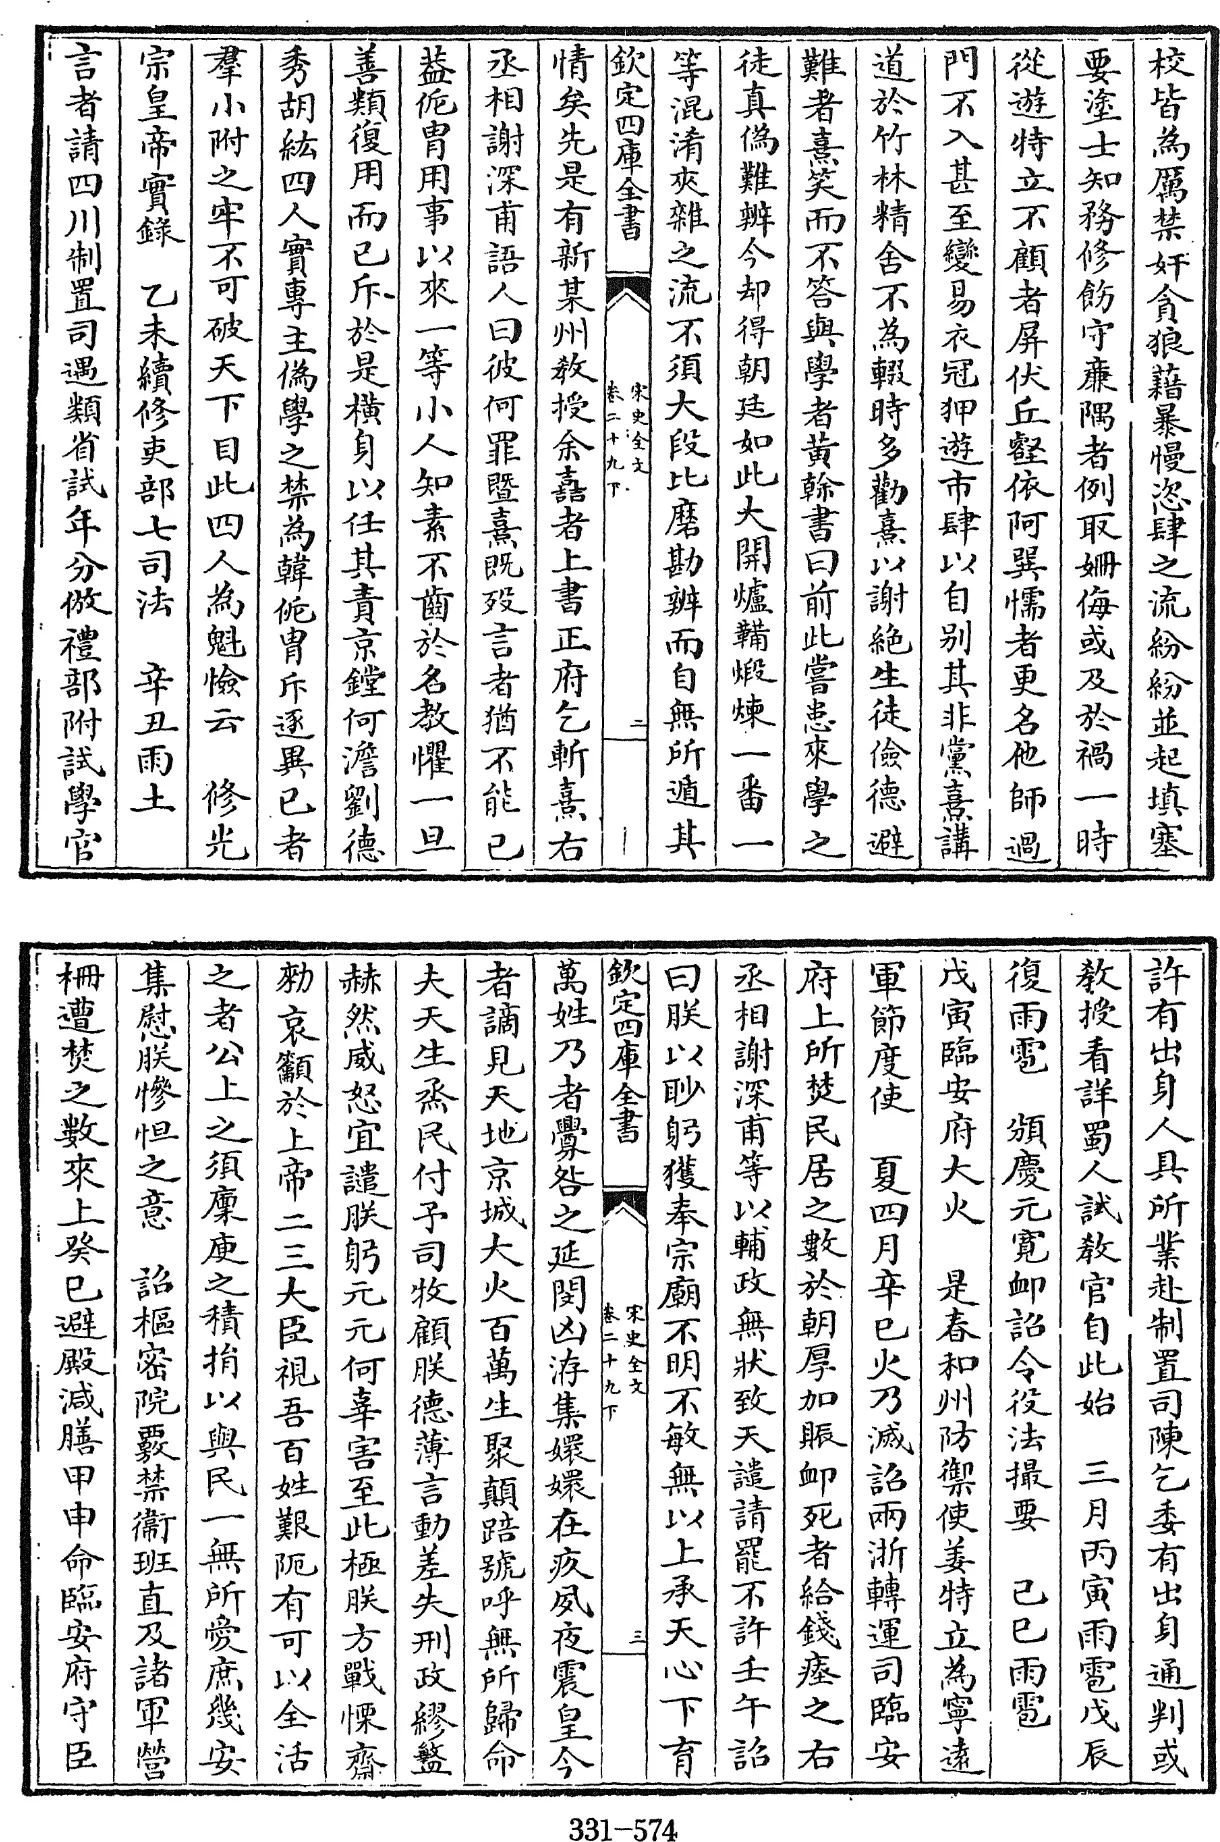 校皆為厲禁奸貪狼藉暴慢恣肆之流紛紛並起填塞
要塗士知務修飭守廉隅者例取姍侮或及於禍一時
從遊特立不顧者屏伏丘壑依阿巽懦者更名他師過
門不入甚至變易衣冠狎遊市肆以自别其非黨熹講
道於竹林精舍不為輟時多勸熹以謝絶生徒儉德避
難者熹笑而不答與學者黄榦書曰前此嘗患來學之
徒真偽難辨今却得朝廷如此大開爐鞲煆煉一番一
等混淆夾雜之流不須大段比磨勘辨而自無所遁其
欽定四庫全書
宋史全文
卷二十九下
二
情矣先是有新某州教授余嚞者上書正府乞斬熹右
丞相謝深甫語人曰彼何罪暨熹既殁言者猶不能已
葢侂胄用事以來一等小人知素不齒於名教懼一旦
善類復用而已斥於是横身以任其責京鏜何澹劉德
秀胡紘四人實專主偽學之禁為韓侂胄斥逐異已者
羣小附之牢不可破天下目此四人為魁憸云　修光
宗皇帝實錄　乙未續修吏部七司法　辛丑雨土
言者請四川制置司遇類省試年分倣禮部附試學官
許有出身人具所業赴制置司陳乞委有出身通判或
教授看詳蜀人試教官自此始　三月丙寅雨雹戊辰
復雨雹　頒慶元寛卹詔令役法撮要　己巳雨雹
戊寅臨安府大火　是春和州防禦使姜特立為寧遠
軍節度使　夏四月辛巳火乃滅詔兩浙轉運司臨安
府上所焚民居之數於朝厚加賑卹死者給錢瘞之右
丞相謝深甫等以輔政無狀致天譴請罷不許壬午詔
曰朕以眇躬獲奉宗廟不明不敏無以上承天心下育
欽定四庫全書
宋史全文
卷二十九下
三
萬姓乃者釁咎之延閔凶洊集嬛嬛在疚夙夜震皇今
者謫見天地京城大火百萬生聚顛踣號呼無所歸命
夫天生烝民付予司牧顧朕德薄言動差失刑政繆盭
赫然威怒宜譴朕躬元元何辜害至此極朕方戰慄齋
勑哀籲於上帝二三大臣視吾百姓艱阨有可以全活
之者公上之須廩庾之積捐以與民一無所愛庶幾安
集慰朕慘怛之意　詔樞密院覈禁衞班直及諸軍營
柵遭焚之數來上癸巳避殿減膳甲申命臨安府守臣
331-574